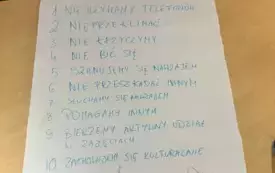 1 NIE UŻYWAMY TELEFONÓW
2 NIE PRZEKLINAĆ
3 NIE KRZYCZYMY
4 NIE BIĆ SIĘ
5 SZANUJEMY SIĘ NAWZAJEM
6 NIE PRZESZKADZAĆ INNYM
7 SŁUCHAMY SIĘ NAWZAJEM
8 POMAGAMY INNYM
9 BIERZEMY AKTYWNY UDZIAŁ
W ZAJĘCIACH
10 ZACHOWUJEMY SIĘ KULTURALNIE